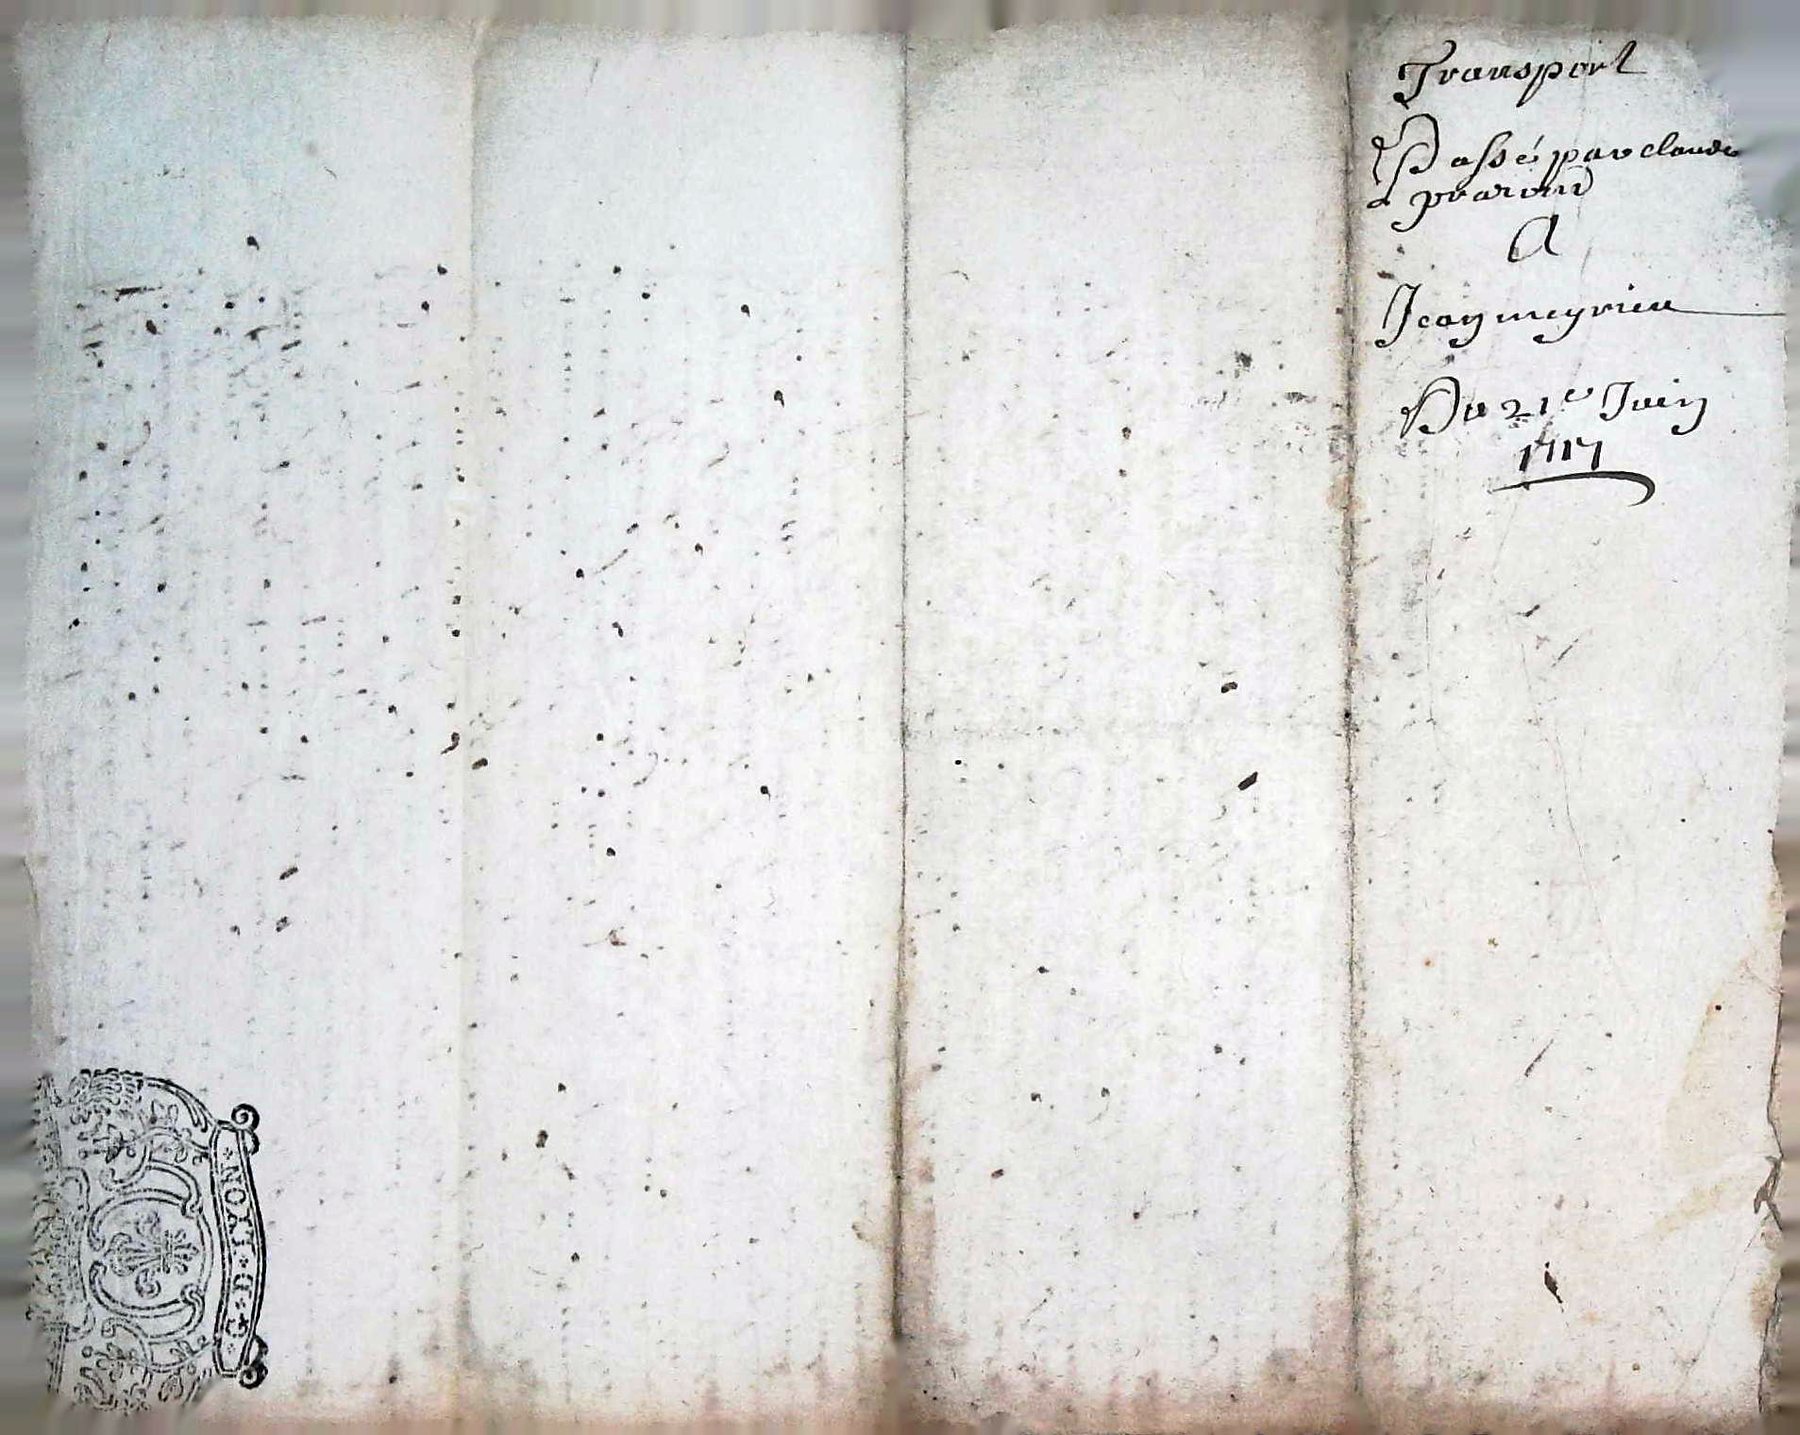 Transport
Passé par claude
a prarond
A
Jean meyrieu
Du 21e Juin
1717
LYON